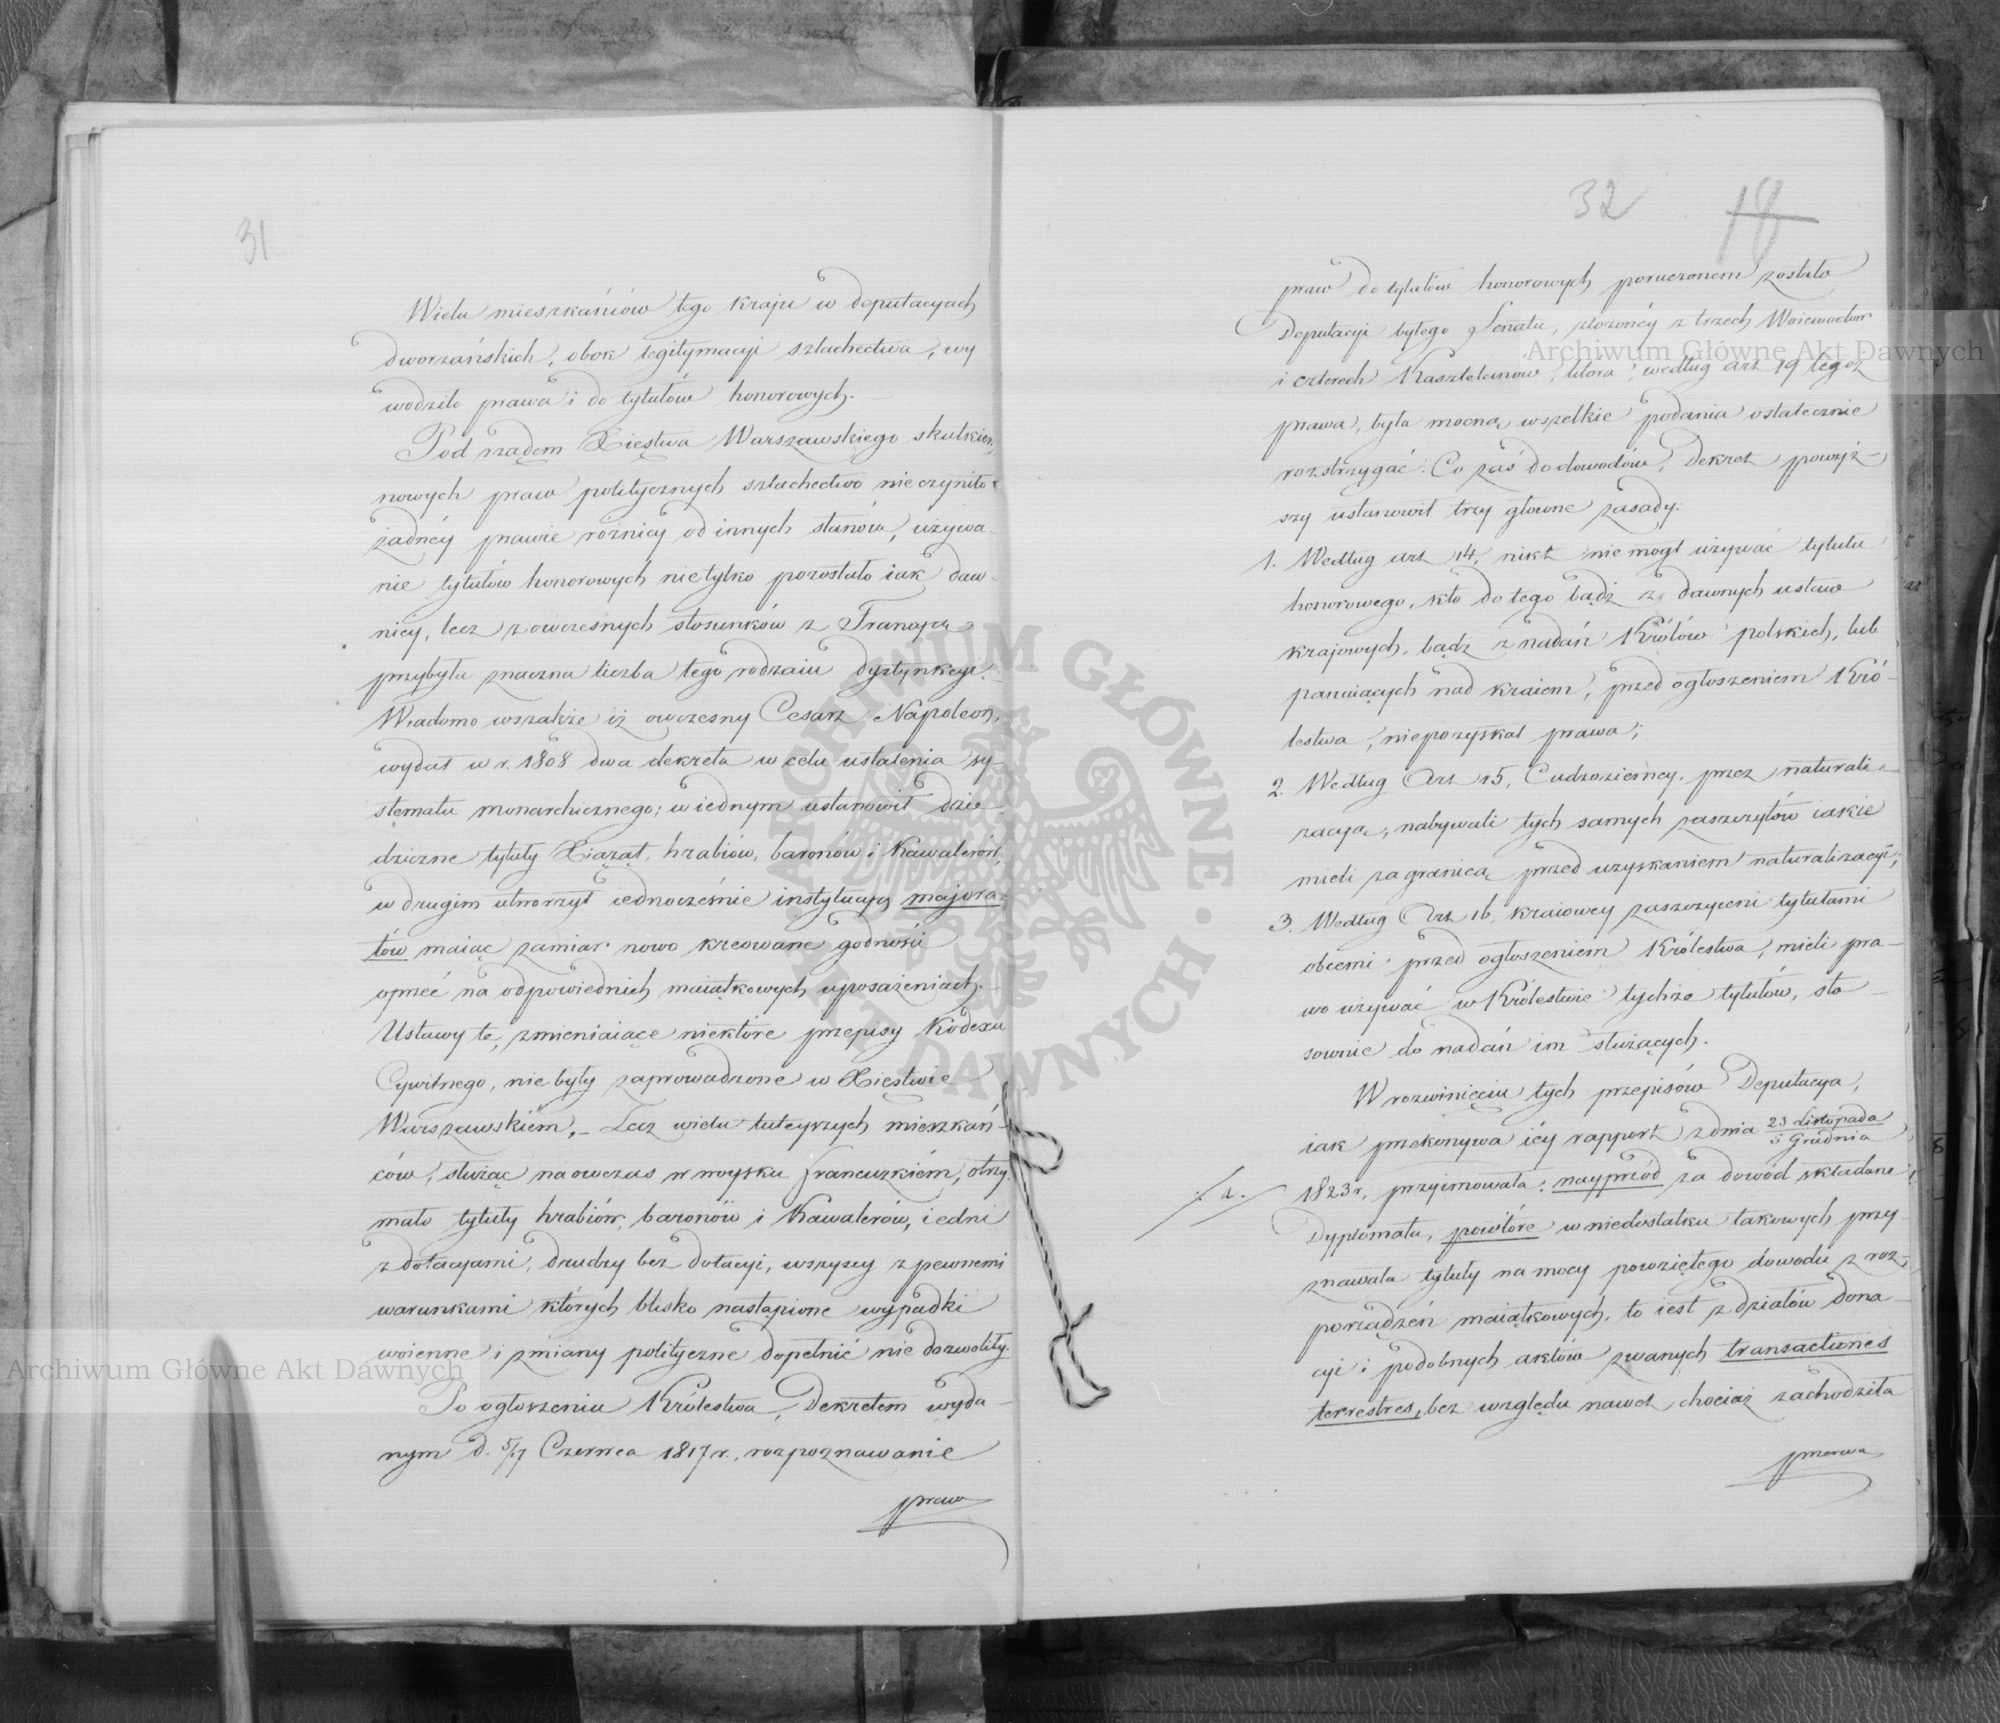 31
Wielu mieszkańców tego kraju w deputacyach
dworzańskich, obok legitymacyi szlachectwa, wy
wodziło prawa i do tytułów honorowych.
Pod rządem Xięstwa Warszawskiego skutkiem
nowych praw politycznych szlachectwo nie czyniło
żadnéy prawie różnicy od innych stanów, używa-
nie tytułów honorowych nie tylko pozostało iak daw-
niey, lecz z owczesnych stosunków z Francyą
przybyła znaczna liczba tego rodzaiu dystynkcyi.
Wiadomo wszakże iż owczesny Cesarz Napoleon,
wydał w r. 1808 dwa dekreta w celu ustalenia sy-
stematu monarchicznego; w iednym ustanowił dzie-
dziczne tytuły Xiążąt, hrabiów, baronów i Kawalerów,
w drugim utworzył iednocześnie instytucyą majora-
tów maiąc zamiar nowo kreowane godności
oprzéć na odpowiednich maiątkowych uposażeniach.
Ustawy te, zmieniaiące niektóre przepisy Kodexu
Cywilnego, nie były zaprowadzone w Xięstwie
Warszawskiém. – Lecz wielu tuteyszych mieszkań-
ców, służąc na owczas w woysku francuzkiém, otrzy
mało tytuły hrabiów, baronów i Kawalerów, iedni
z dotacyami, drudzy bez dotacyi, wszyscy z pewnemi
warunkami których blisko nastąpione wypadki
woienne i zmiany polityczne dopełnić nie dozwoliły.
Po ogłoszeniu Królestwa, Dekretem wyda-
nym d. 5/17 Czerwca 1817 r., rozpoznawanie
praw
32 18
praw do tytułów honorowych poruczonem zostało
Deputacyi byłego Senatu, złożonéy z trzech Woiewodów
i czterech Kasztelanów, która, według art 19 tegoż
prawa, była mocną wszelkie podania ostatecznie
rozstrzygać. Co zaś do dowodów, Dekret powyż-
szy ustanowił trzy główne zasady.
1. Według art 14, nikt nie mógł używać tytułu
honorowego, kto do tego bądź z dawnych ustaw
krajowych, bądź z nadań Królów polskich, lub
panuiących nad kraiem, przed ogłoszeniem Kró-
lestwa, nie pozyskał prawa;
2. Według Art 15, Cudzoziemcy, przez naturali-
zacyą, nabywali tych samych zaszczytów iakie
mieli za granicą przed uzyskaniem naturalizacyi;
3. Według Art 16, kraiowcy zaszczyceni tytułami
obcemi przed ogłoszeniem Królestwa, mieli pra-
wo używać w Królestwie tychże tytułów, sto-
sownie do nadań im służących.
W rozwinięciu tych przepisów Deputacya,
iak przekonywa iéy rapport z dnia 23 Listopada/5 Grudnia
/: a. :/ 1823 r., przyimowała: nayprzód za dowód składane
Dyplomata, powtóre w niedostatku takowych przy-
znawała tytuły na mocy powziętego dowodu z roz-
porządzeń maiątkowych, to iest z działów dona-
cyi i podobnych aktów zwanych transactiones
terrestres, bez względu nawet chociaż zachodziła
przerwa
Archiwum Główne Akt Dawnych
Archiwum Główne Akt Dawnych
ARCHIWUM GŁÓWNE AKT DAWNYCH